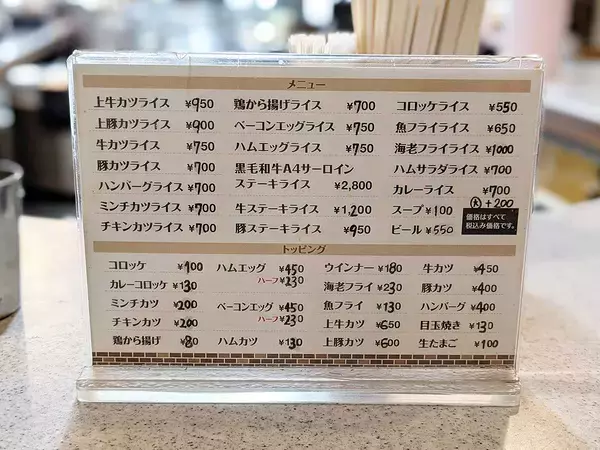 メニュー
上牛カツライス ¥950
上豚カツライス ¥900
牛カツライス ¥750
豚カツライス ¥700
ハンバーグライス ¥700
ミンチカツライス ¥700
チキンカツライス ¥700
鶏から揚げライス ¥700
ベーコンエッグライス ¥750
ハムエッグライス ¥750
黒毛和牛A4サーロイン
ステーキライス ¥2,800
牛ステーキライス ¥1,200
豚ステーキライス ¥950
コロッケライス ¥550
魚フライライス ¥650
海老フライライス ¥1000
ハムサラダライス ¥700
カレーライス ¥700
大 +200
スープ ¥100
ビール ¥550
価格はすべて
税込み価格です。
トッピング
コロッケ ¥100
カレーコロッケ ¥130
ミンチカツ ¥200
チキンカツ ¥200
鶏から揚げ ¥80
ハムエッグ ¥450
ハーフ¥230
ベーコンエッグ ¥450
ハーフ¥230
ハムカツ ¥130
ウインナー ¥180
海老フライ ¥230
魚フライ ¥130
上牛カツ ¥650
上豚カツ ¥600
牛カツ ¥450
豚カツ ¥400
ハンバーグ ¥400
目玉焼き ¥130
生たまご ¥100